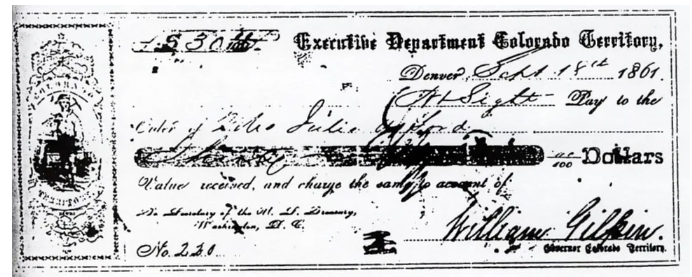 $ 30 00/100 Executive Department Colorado Territory,
Denver, Sept 18th 1861.
At Sight Pay to the
Order of Julia
Dollars
Value received, and charge the same to account of
To Secretary of the U. S. Treasury,
Washington, D. C.
William Gilpin.
No. 230
Governor Colorado Territory.
COLORADO
TERRITORY